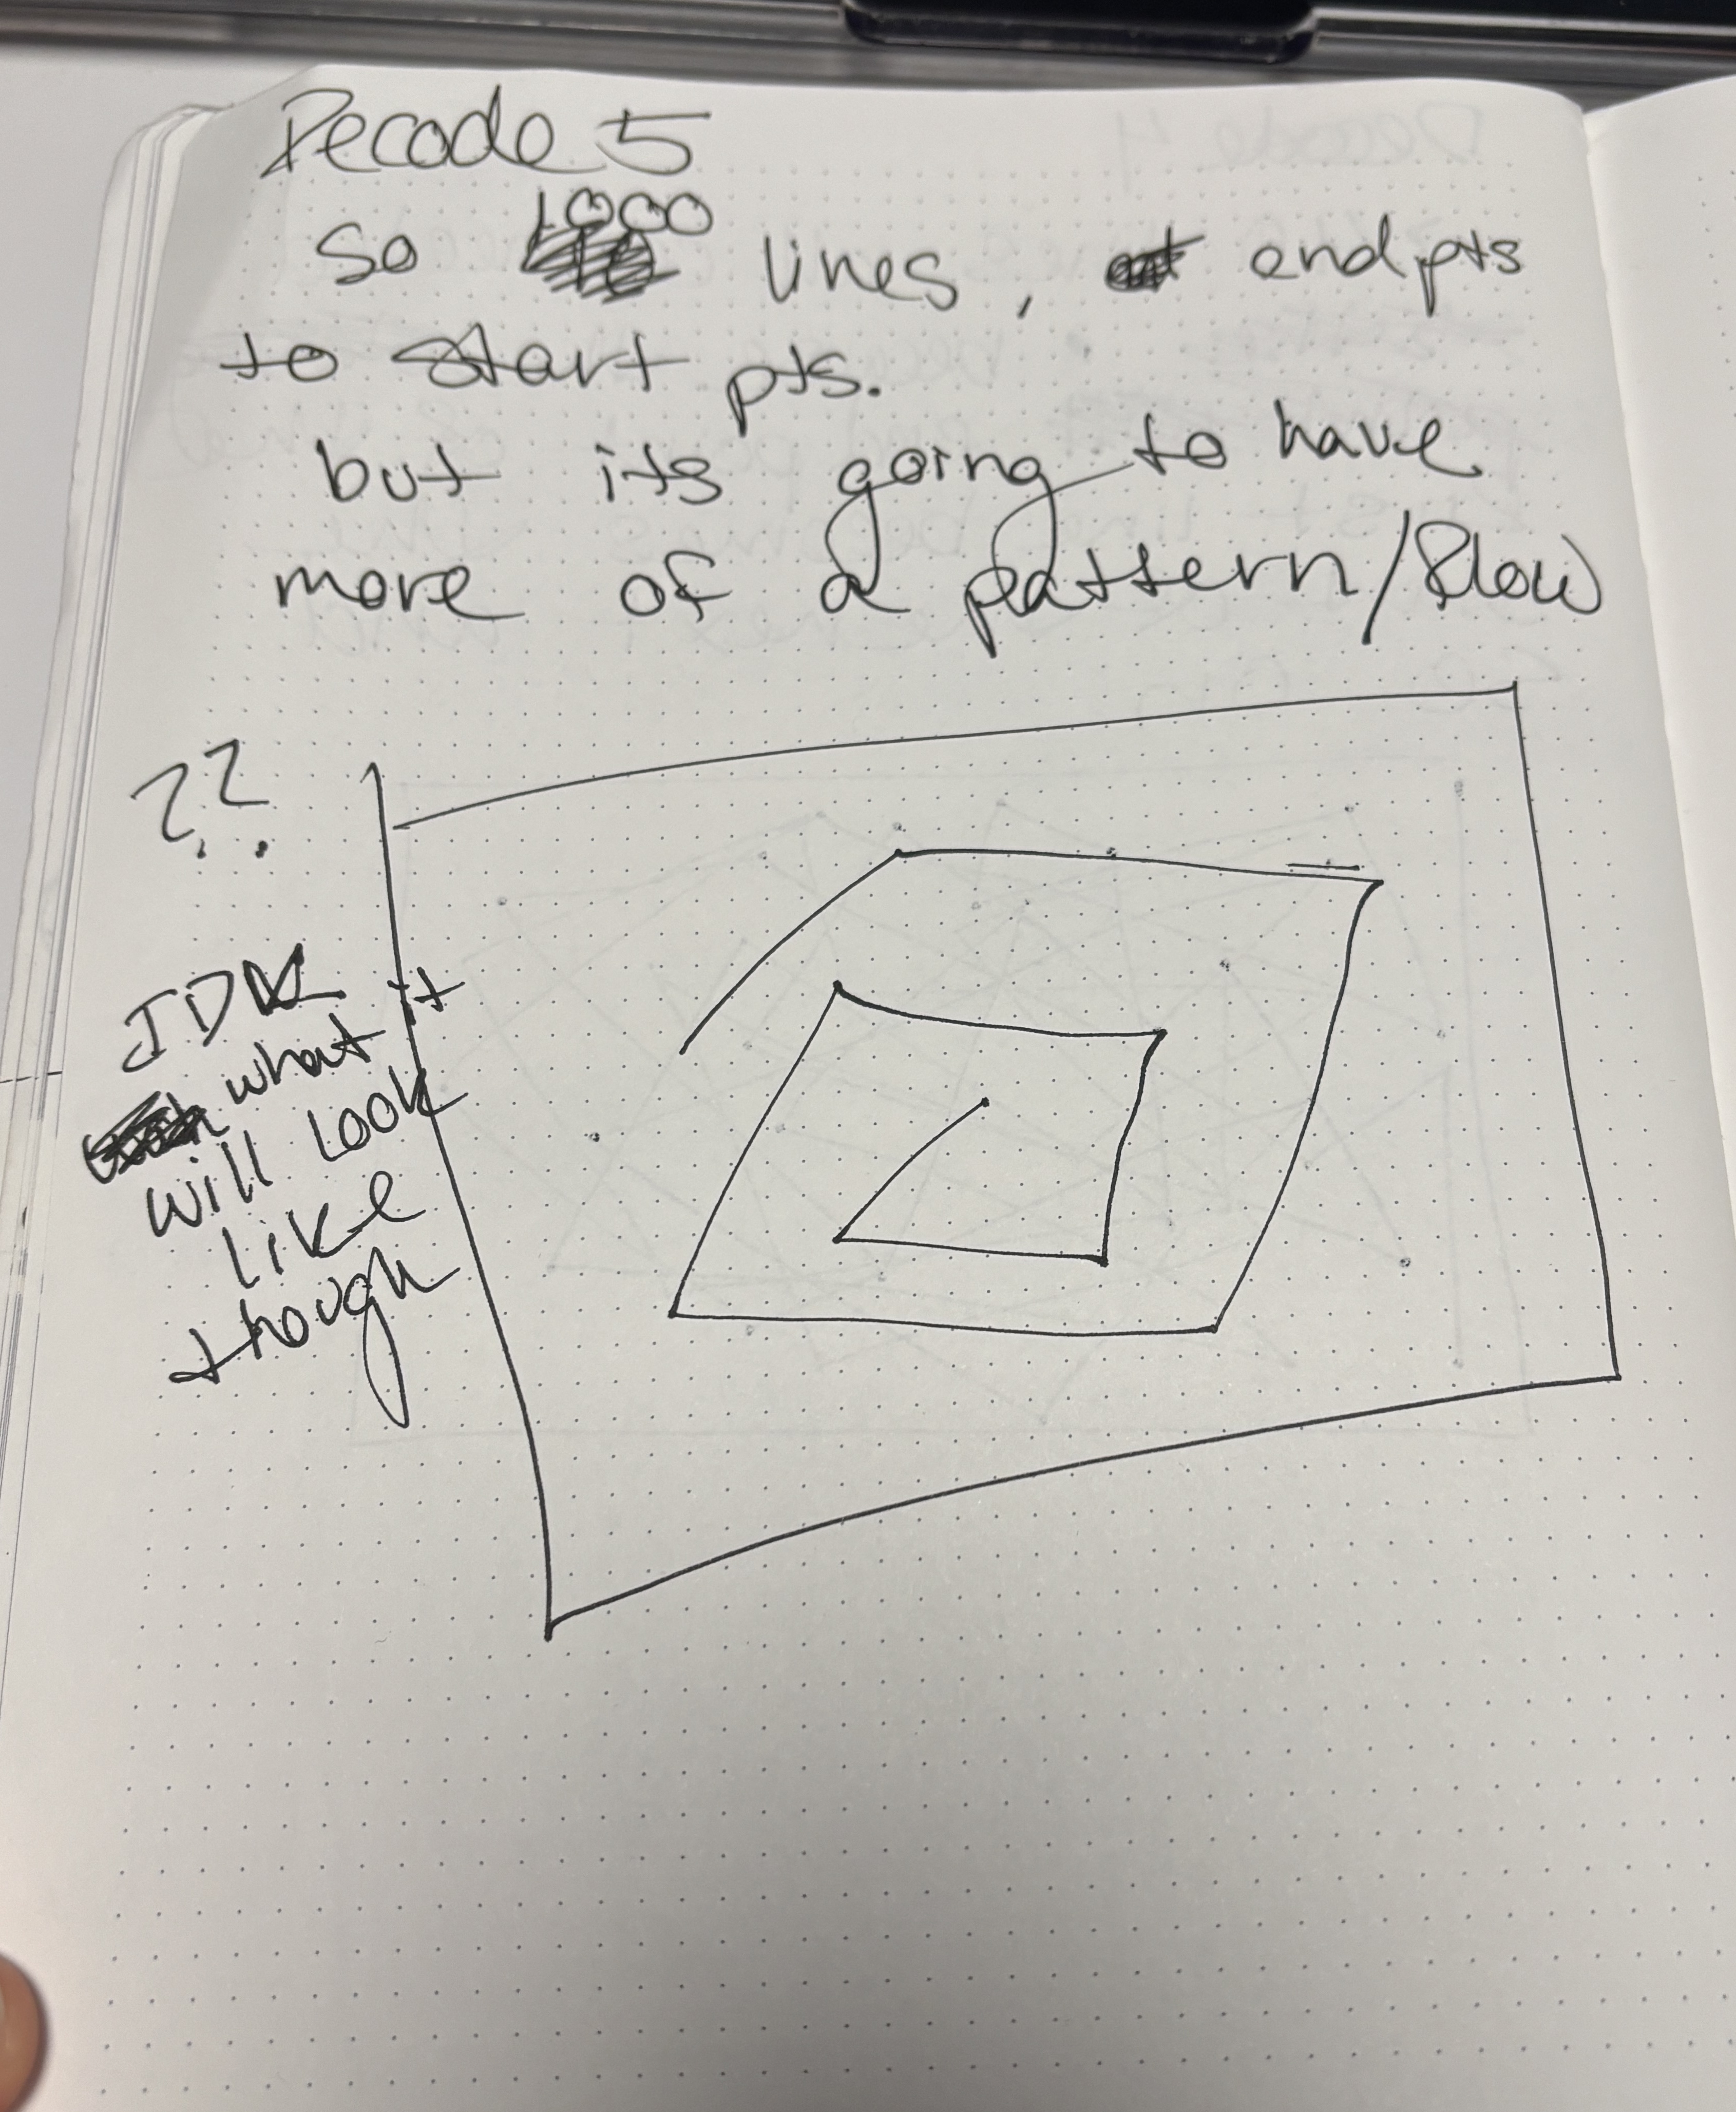 Decode 5
So 1000 lines, end pts
to start pts.
but its going to have
more of a pattern/flow
??
IDK
what it
will look
like
though